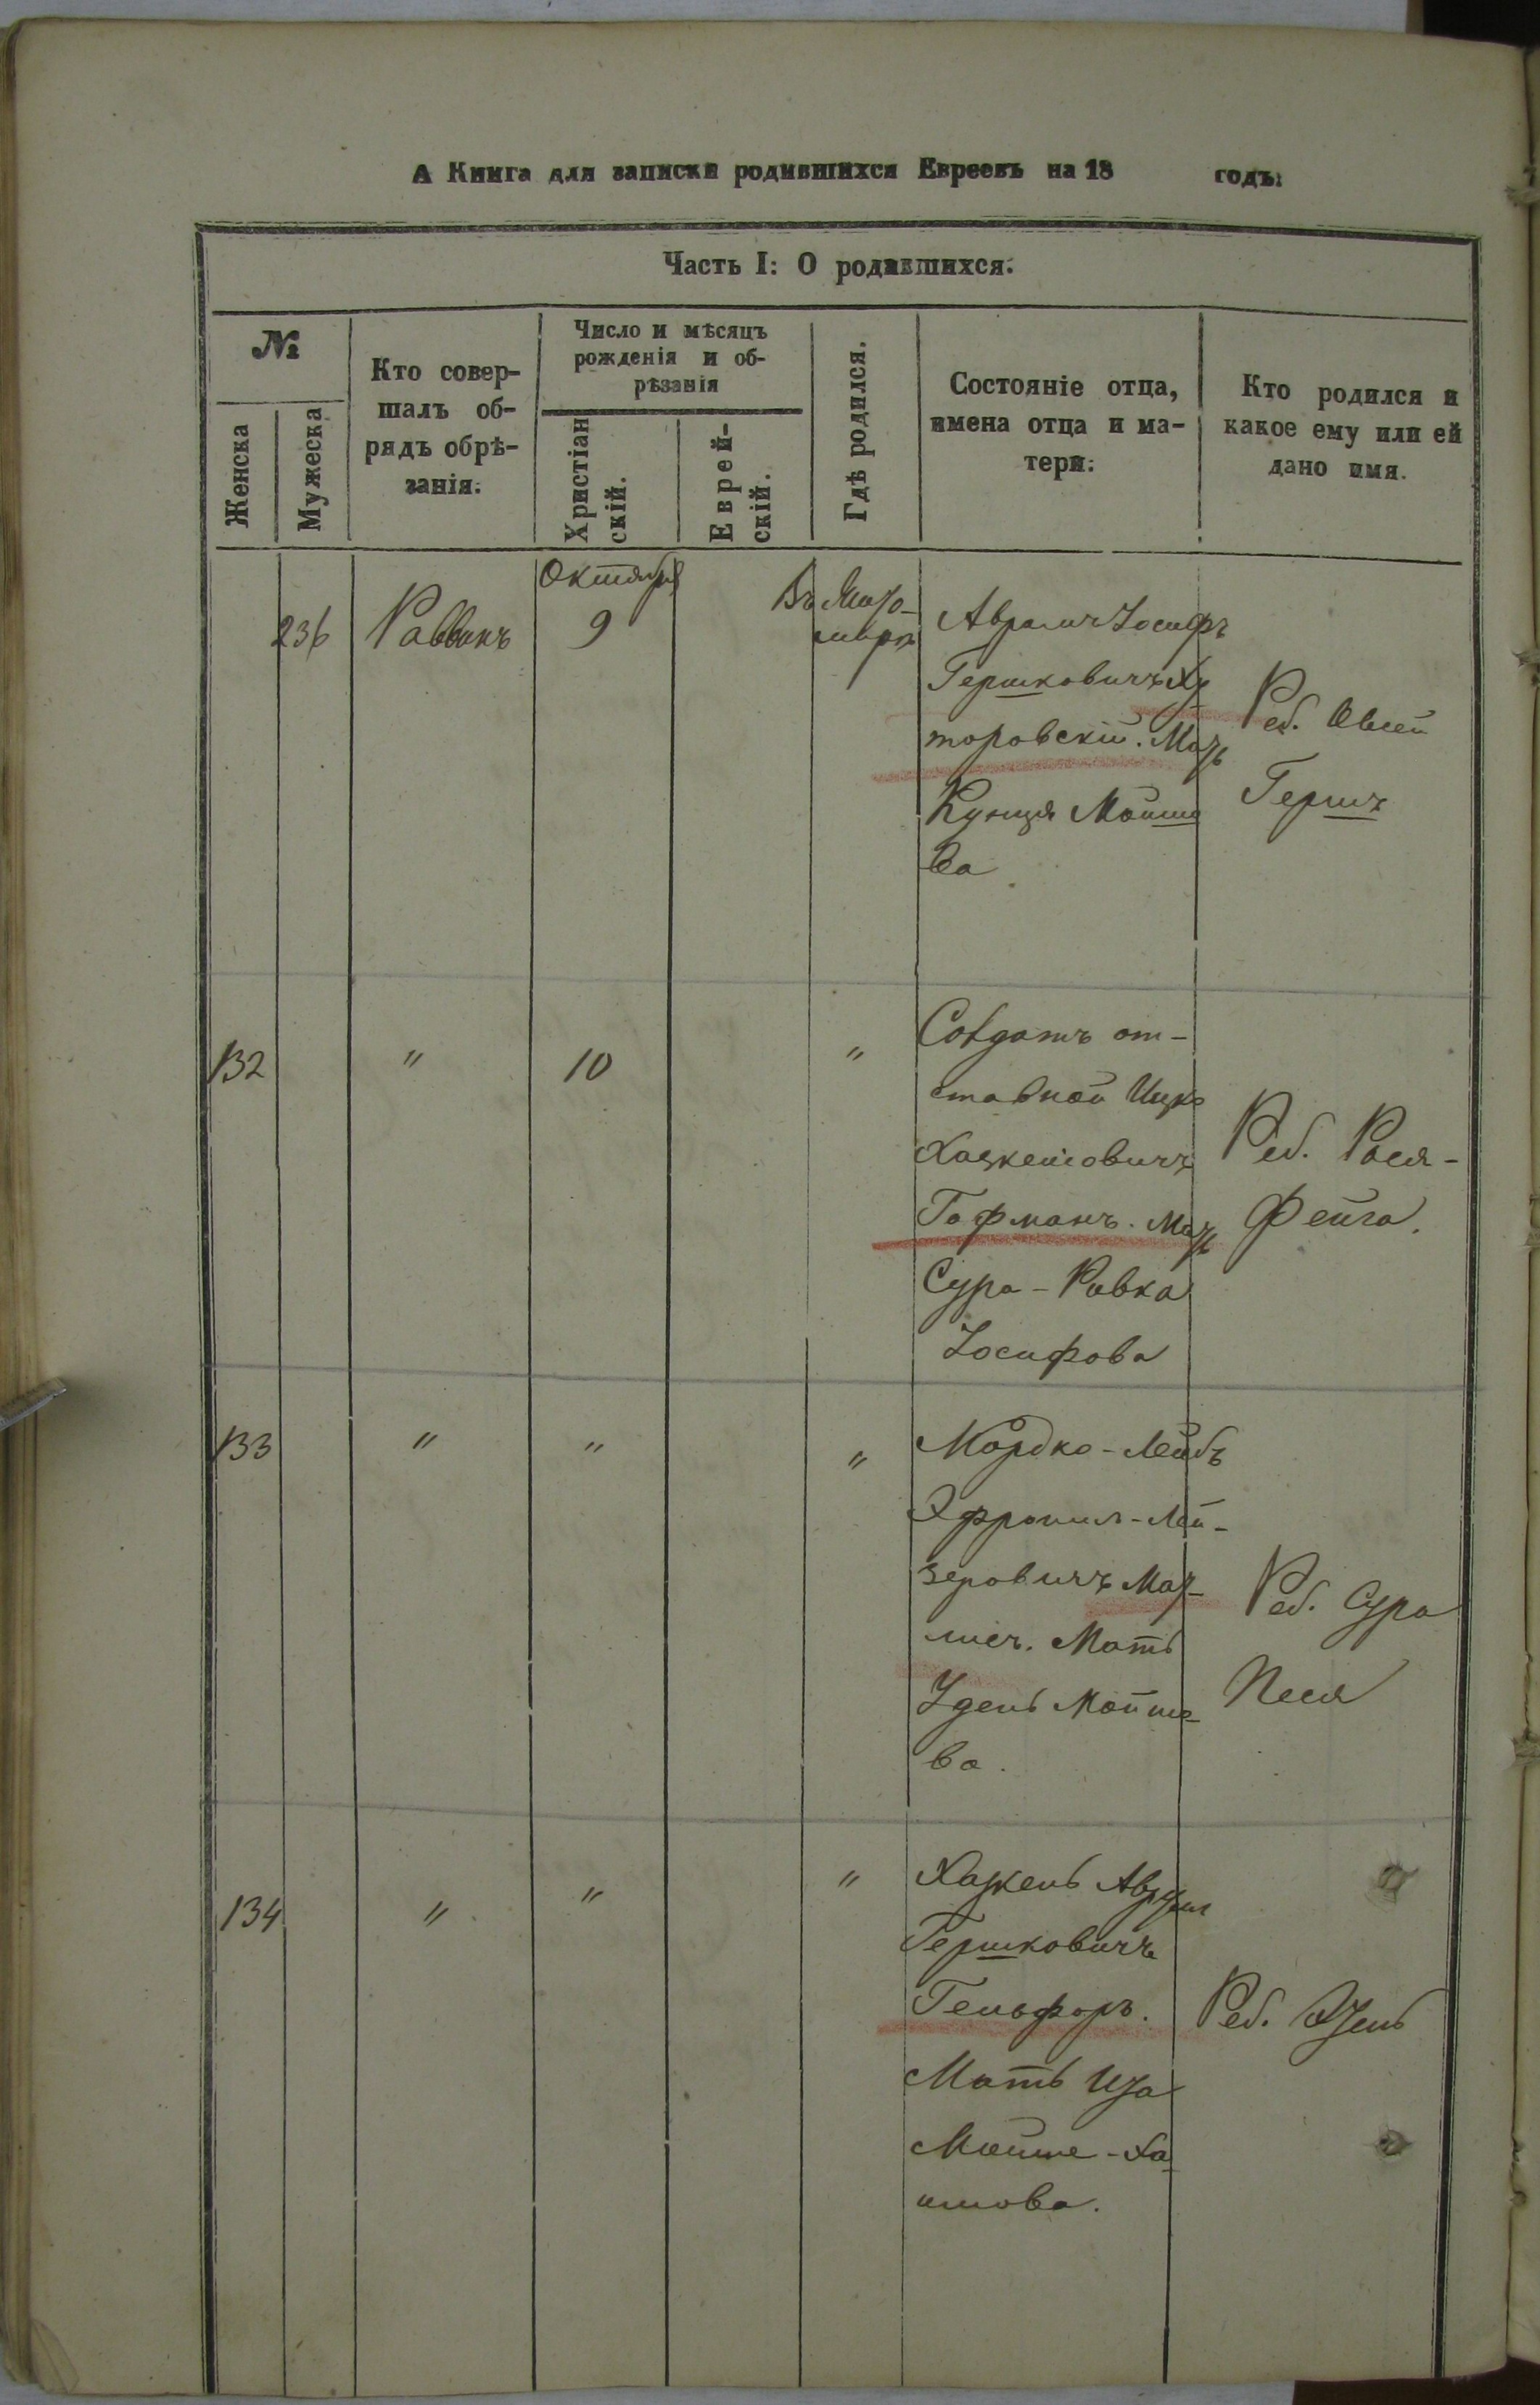 А Книга для записки родившихся Евреевъ на 18 годъ:
Часть I: О родившихся.
№
Женска
Мужеска
Кто совер-
шалъ об-
рядъ обрѣ-
занія.
Число и мѣсяцъ
рожденія и об-
рѣзанія
Христіан
скій.
Еврей-
скій.
Гдѣ родился.
Состояніе отца,
имена отца и ма-
тери.
Кто родился и
какое ему или ей
дано имя.
236
Раввинъ
Октября
9
Въ Жито-
мирѣ
Аврамъ Іосифъ
Гершковичъ Ху
торовскій. Мать
Куция Мошко
ва
Реб. Овсей
Гершъ
132
"
10
"
Солдатъ от-
ставной Ицко
Хацкелевичъ
Гофманъ. Мать
Сура-Ривка
Іосифова
Реб. Рося-
Фейга.
133
"
"
"
Мордко-Лейбъ
Эфроим-Лей-
зеровичъ Мар-
Мать
Мошко-
ва.
Реб. Сура
Песя
134
"
"
"
Хацкель Аврум
Гершковичъ
Гельфоръ.
Мать Иза
Мойше-Ха
имова.
Реб. Эзель